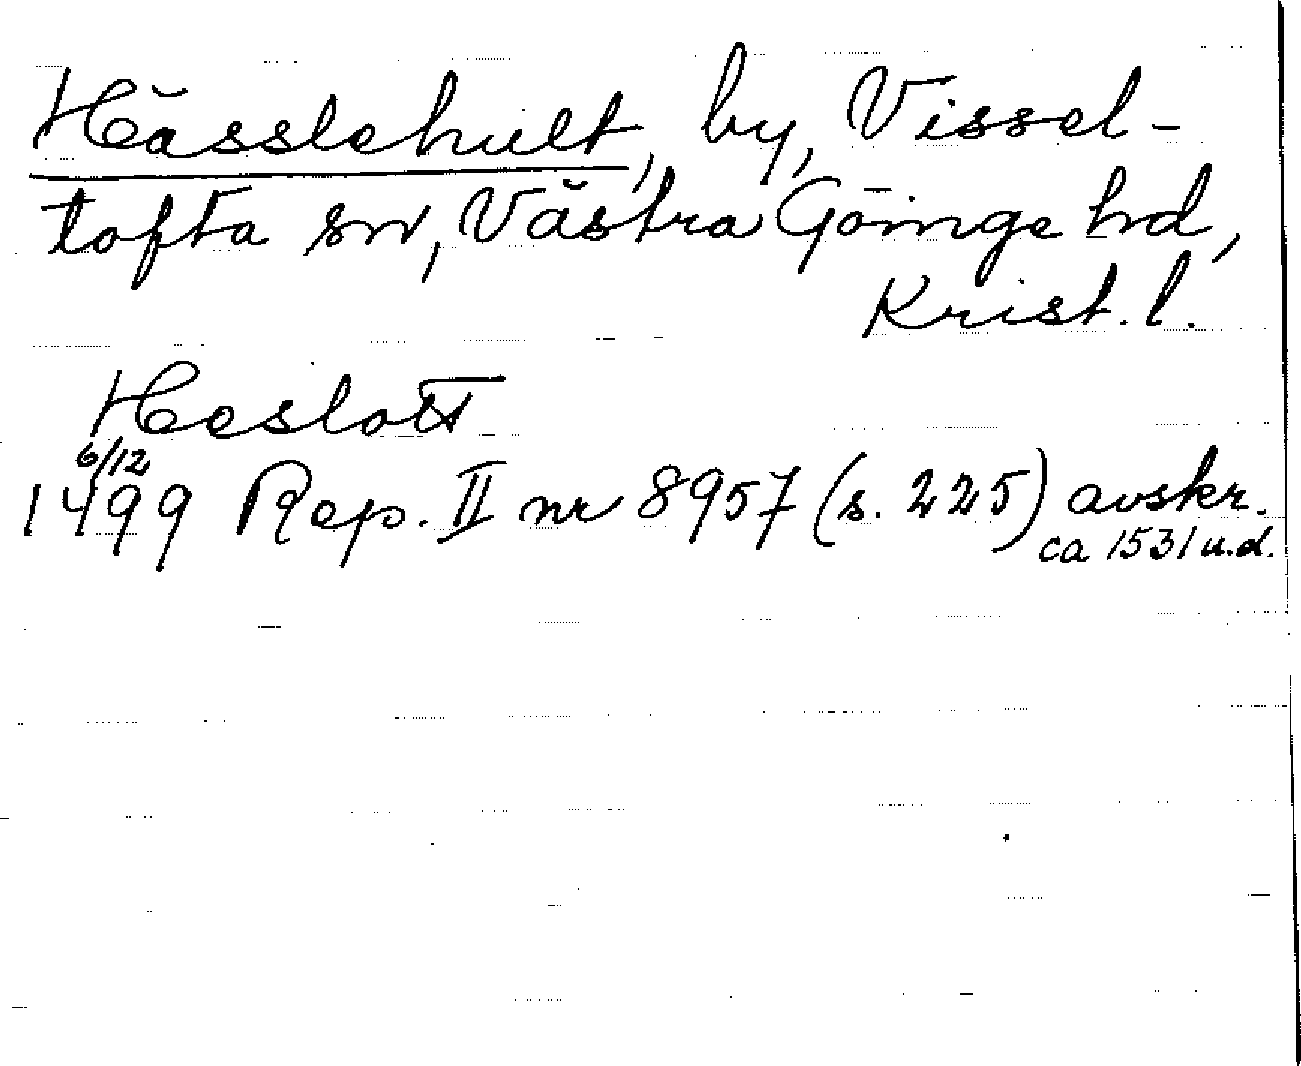 Hässlehult, by, Vissel-
tofta sn, Västra Göinge hd,
Krist. l.
Heslott
6/12
1499 Rep. II nr 8957 (s. 225) avskr.
ca 1531 u.d.